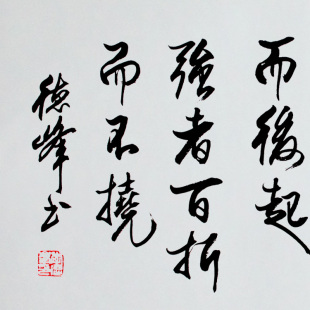 而後起
強者百折
而不撓
德峰书